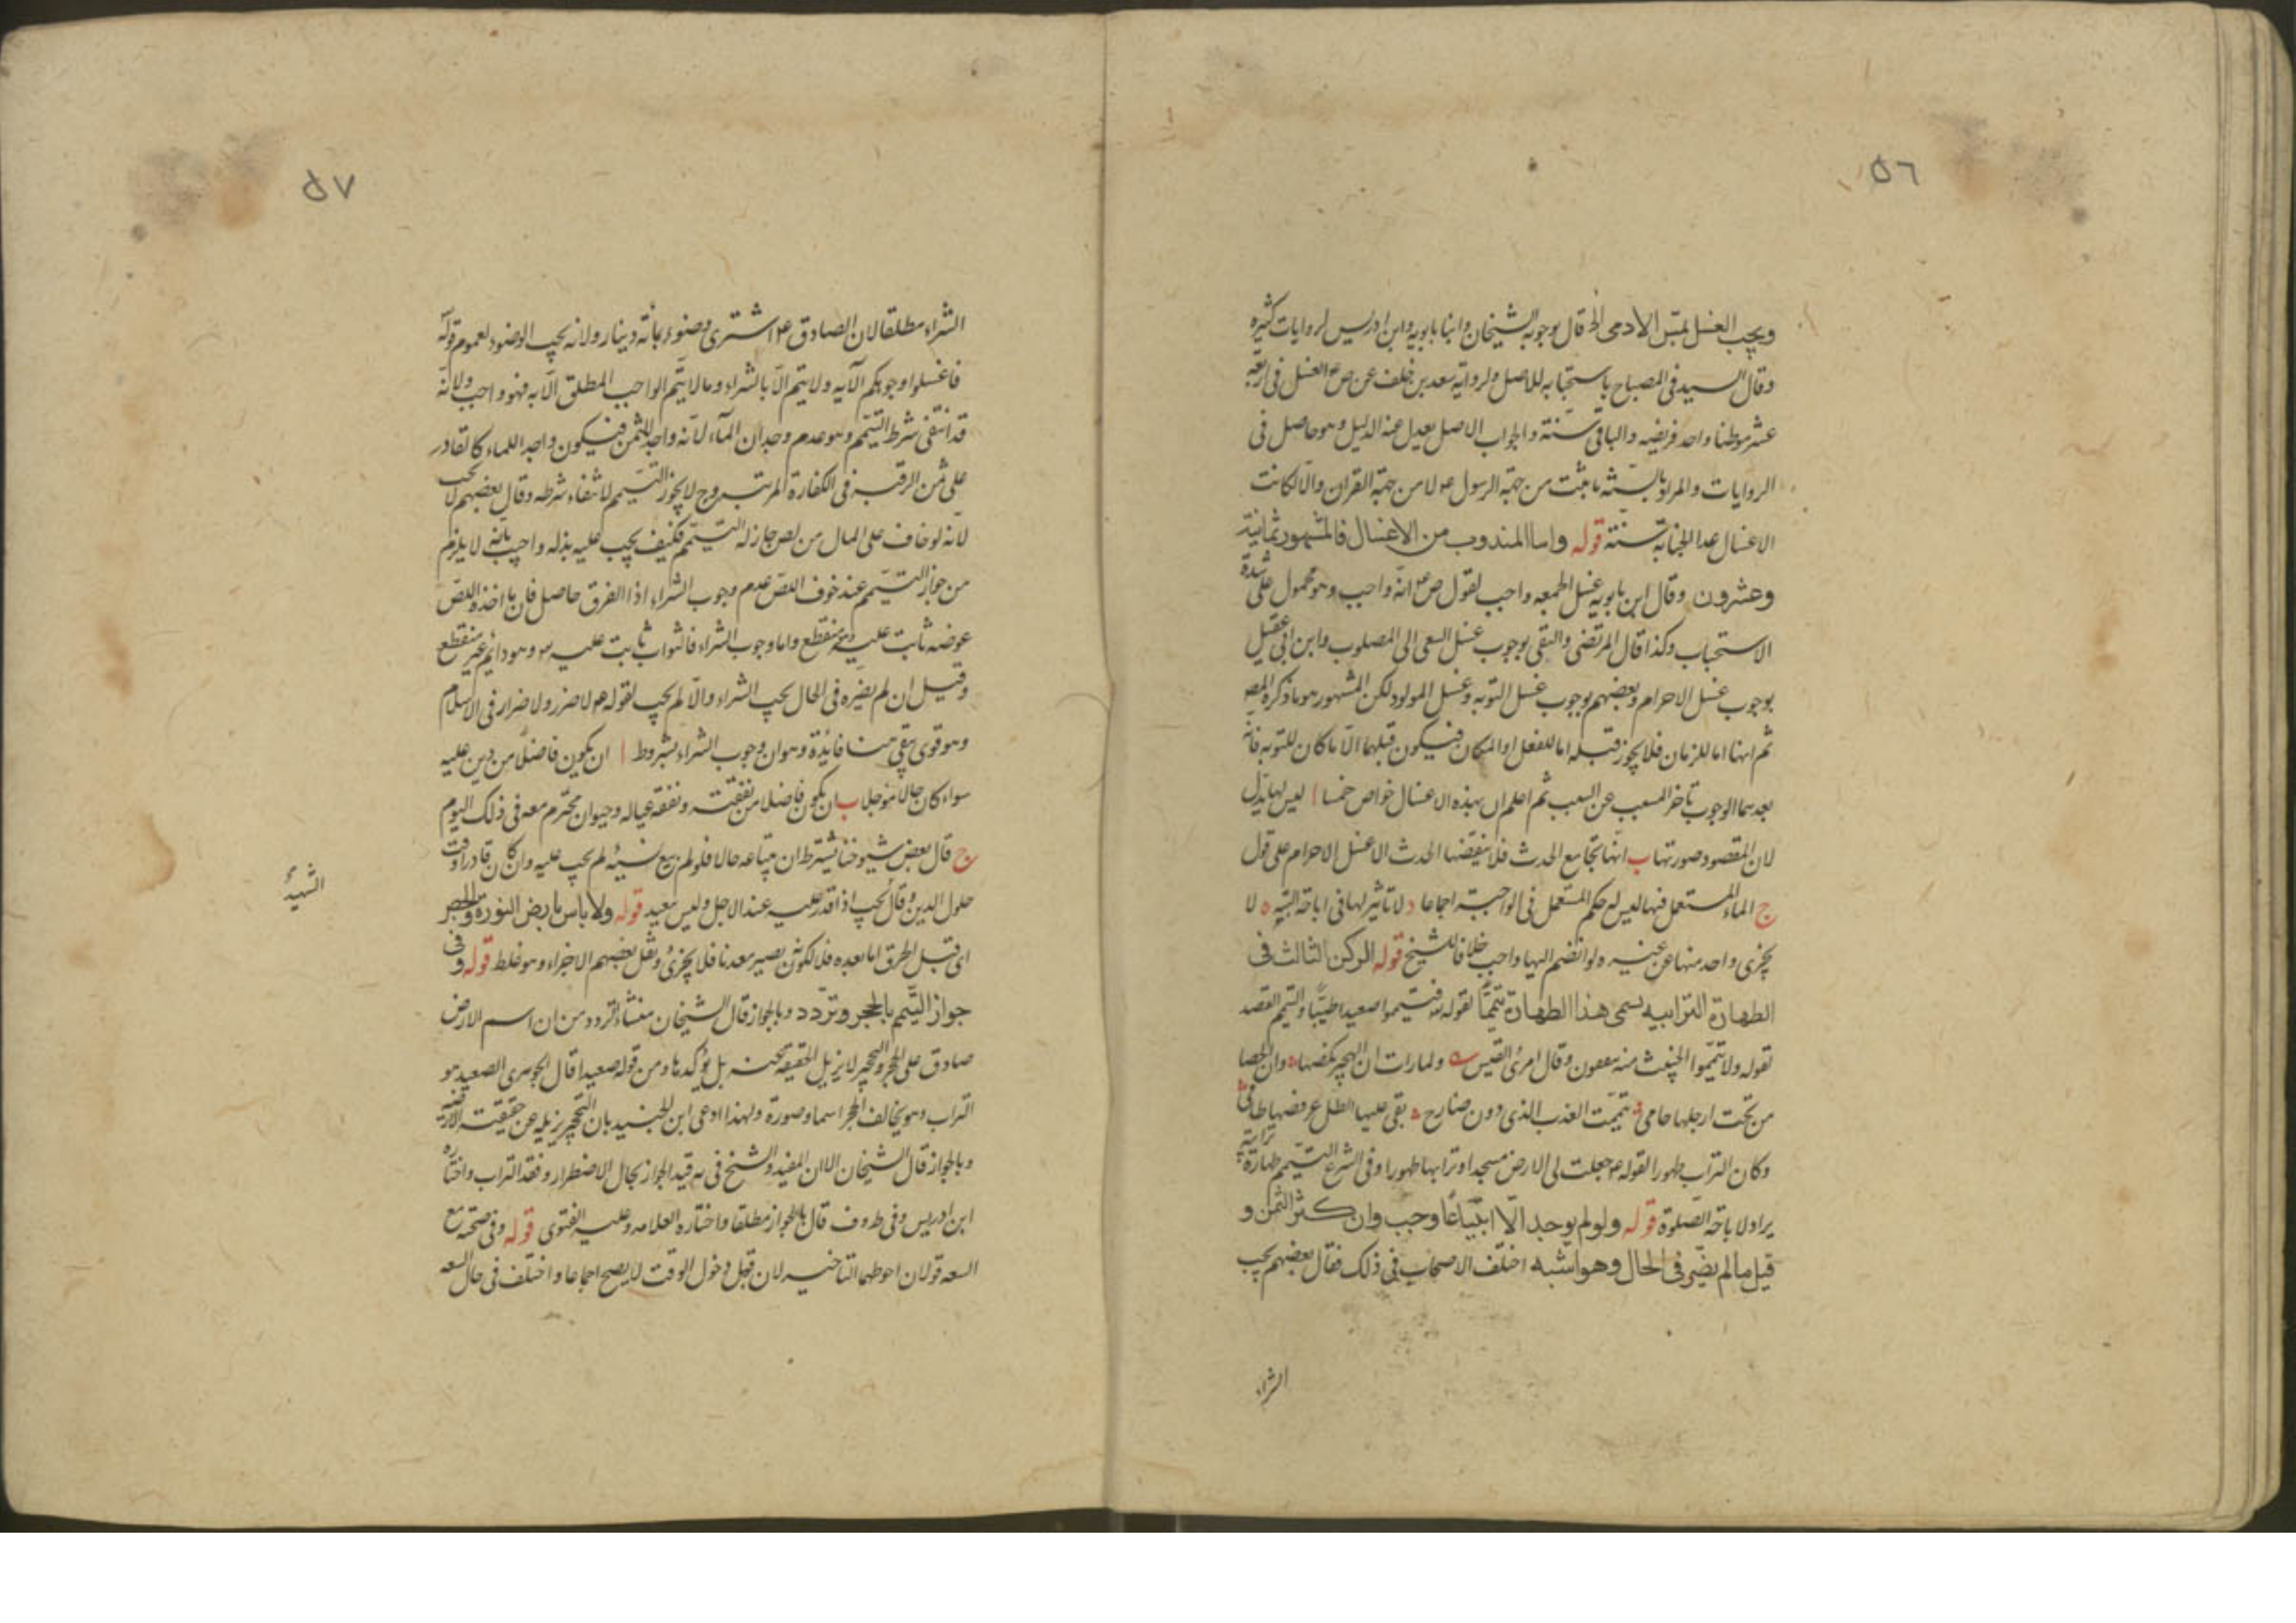 ٥٦
ويجب الغسل بمس الادمى الخ قال بوجوبه الشيخان وابنا بابويه وابن ادريس لروايات كثيره
وقال السيد فى المصباح باستحبابه للاصل ولرواية سعد بن خلف عن ص ع الغسل فى اربعة
عشر موطنا واحد فريضه والباقى سنة والجواب الاصل يعدل عنه الدليل وهو حاصل فى
الروايات والمراد بالسنة ما ثبت من جهة الرسول ع لا من جهة القران والا لكانت
الاغسال عدا الجنابة سنة قوله واما المندوب من الاغسال فالمشهور ثمانية
وعشرون وقال ابن بابويه غسل الجمعه واجب لقول ص ع انه واجب وهو محمول على شدة
الاستحباب وكذا قال المرتضى والتقى بوجوب غسل السعى الى المصلوب وابن ابى عقيل
بوجوب غسل الاحرام وبعضهم بوجوب غسل التوبه وغسل المولود لكن المشهور هو ما ذكره المص
ثم انها اما للزمان فلا يجوز قبله اما للفعل او المكان فيكون قبلهما الا ما كان للتوبه فانه
بعدهما لوجوب تاخر المسبب عن السبب ثم اعلم ان بهذه الاغسال خواص خمسا ا ليس لها بدل
لان المقصود صورتها ب انها تجامع الحدث فلا ينقضها الحدث الا غسل الاحرام على قول
ج الماء المستعمل فيها ليس له حكم المستعمل فى الواجبة اجماعا د لا تاثير لها فى اباحة ه لا
يجزى واحد منها عن غيره ولو انضم اليها واجب خلافا للشيخ قوله الركن الثالث فى
الطهارة الترابيه يسمى هذا الطهارة تيمما لقوله تع فتيمموا صعيدا طيبا والتيمم القصد
لقوله ولا تيمموا الخبيث منه تنفقون وقال امرئ القيس ولما رات ان الهجير وان الحصا
من تحت ارجلها حامى تيممت العذب الذى دون ضارج يفى عليها الظل عرمضها طافى
وكان التراب طهورا لقوله ع جعلت لى الارض مسجدا وترابها طهورا وفى الشرع التيمم طهارة ترابية
يراد لاباحة الصلوة قوله ولو لم يوجد الا ابتياعا وجب وان كثر الثمن و
قيل ما لم يضر فى الحال وهو اشبه اختلف الاصحاب فى ذلك فقال بعضهم يجب
الشراء
٥٧
الشراء مطلقا لان الصادق ع اشترى وضوء بمائة دينار ولانه يجب الوضوء لعموم قوله
فاغسلوا وجوهكم الآيه ولا يتم الا بالشراء وما لا يتم الواجب المطلق الا به فهو واجب ولانه
قد انتفى شرط التيمم وهو عدم وجدان المآء لانه واجد للثمن فيكون واجد اللماء كالقادر
على ثمن الرقبه فى الكفارة المرتبه وح لا يجوز التيمم لانتفاء شرطه وقال بعضهم لا يجب
لانه لو خاف على المال من لص جاز له التيمم فكيف يجب عليه بذله واجيب بانه لا يلزم
من جواز التيمم عند خوف اللص عدم وجوب الشراء اذا الفرق حاصل فان ما اخذه اللص
عوضه ثابت عليه وهو منقطع واما وجوب الشراء فالثواب ثابت عليه وهو دائم غير منقطع
وقيل ان لم يضره فى الحال يجب الشراء والا لم يجب لقوله ع لا ضرر ولا ضرار فى الاسلام
وهو قوى بقى هنا فايدة وهو ان وجوب الشراء بشروط ا ان يكون فاضلا من دين عليه
سواء كان حالا موجلا ب ان يكون فاضلا من نفقته ونفقة عياله وحيوان محترم معه فى ذلك اليوم
ج قال بعض شيوخنا يشترط ان يبتاعه حالا فلو لم بيع نسيئه لم يجب عليه وان كان قادرا وقت
حلول الدين وقال يجب اذا قدر عليه عند الاجل وليس ببعيد قوله ولا باس بارض النورة والجص
الشهيد
اى قبل الحرق اما بعده فلا لكونه يصير معدنا فلا يجزئ ونقل بعضهم الاجزاء وهو غلط قوله وفى
جواز التيمم بالحجر وتردد وبالجواز قال الشيخان منشاء التردد من ان اسم الارض
صادق على الحجر والتحجير لا يزيل الحقيقه بل يؤكدها ومن قوله صعيدا قال الجوهرى الصعيد هو
التراب وهو يخالف الحجر اسما وصورة ولهذا ادعى ابن الجنيد بان التحجير يزيله عن حقيقت الارضيه
وبالجواز قال الشيخان الا ان المفيد والشيخ فى يه قيد الجواز بحال الاضطرار وفقد التراب واختاره
ابن ادريس وفى ط وف قال بالجواز مطلقا واختاره العلامه وعليه الفتوى قوله وفى صحته مع
السعه قولان احوطهما التاخير لان قبل دخول الوقت لا يصح اجماعا واختلف فى حال السعه